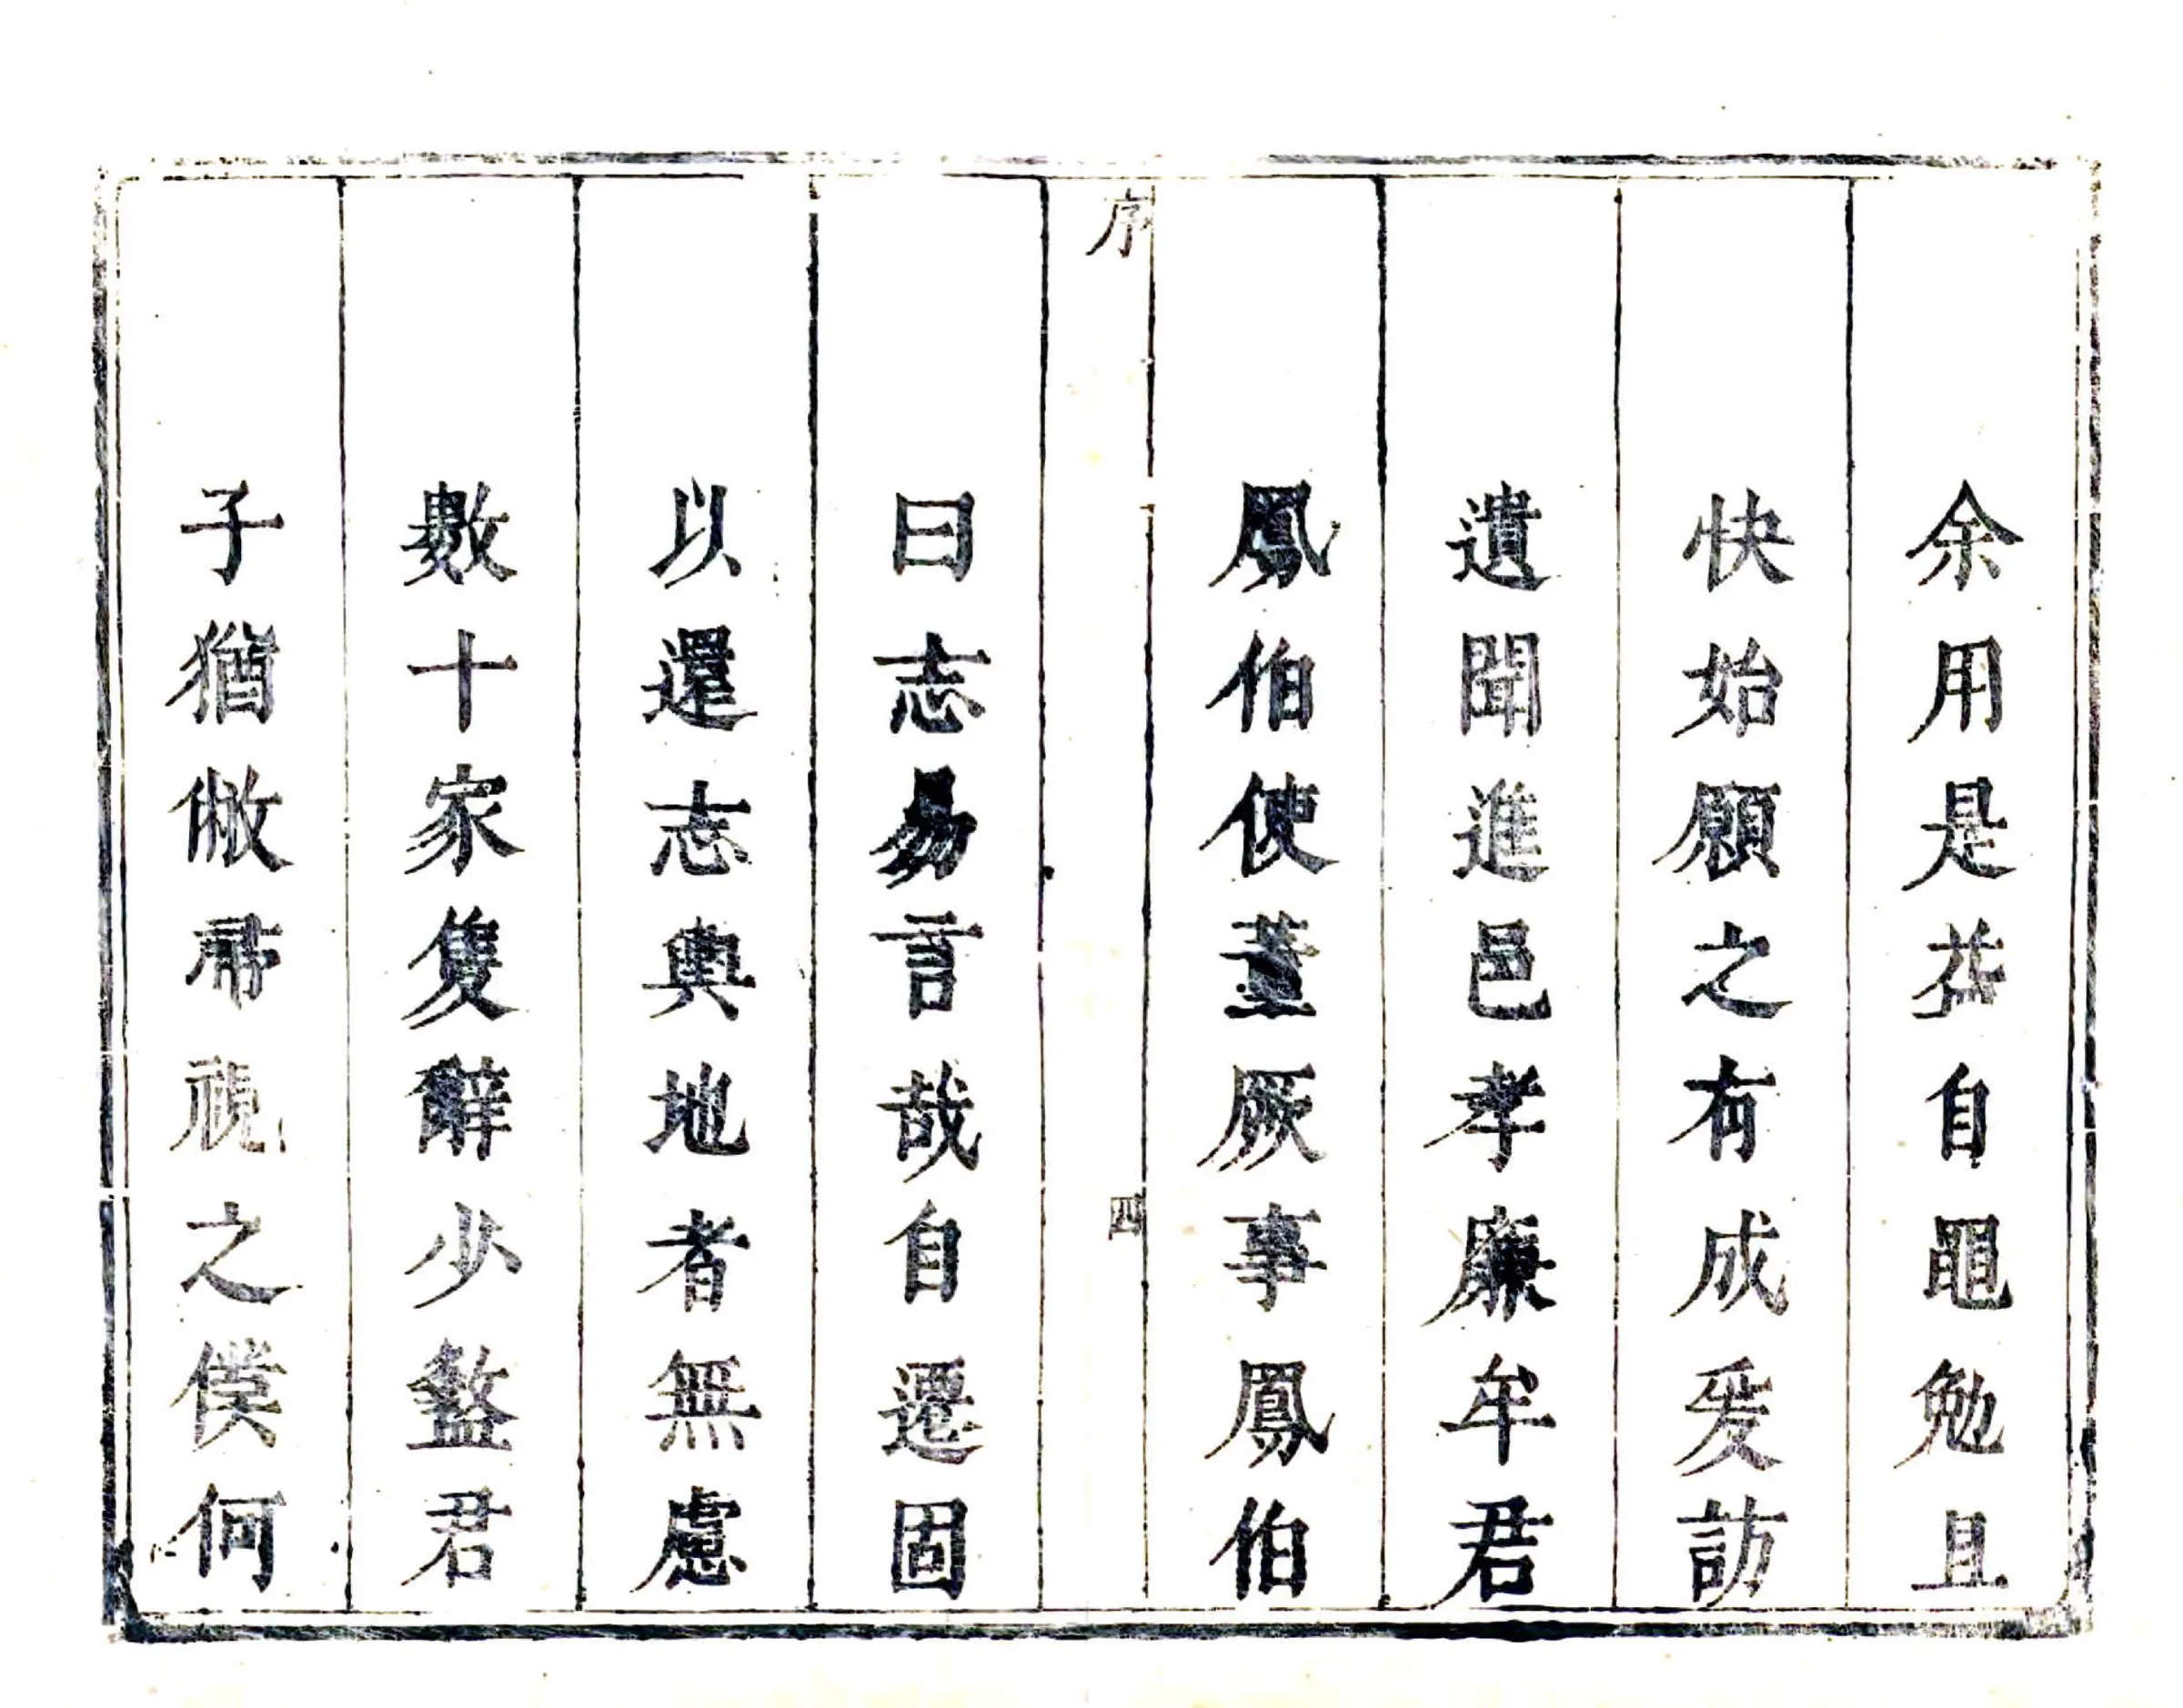 余用是自黽勉且
快始願之有成爰訪
遺聞進邑孝廉牟君
鳳伯使董厥事鳳伯
序
四
曰志易言哉自遷固
以還志輿地者無慮
數十家隻辭少盭君
子猶敝帚視之僕何